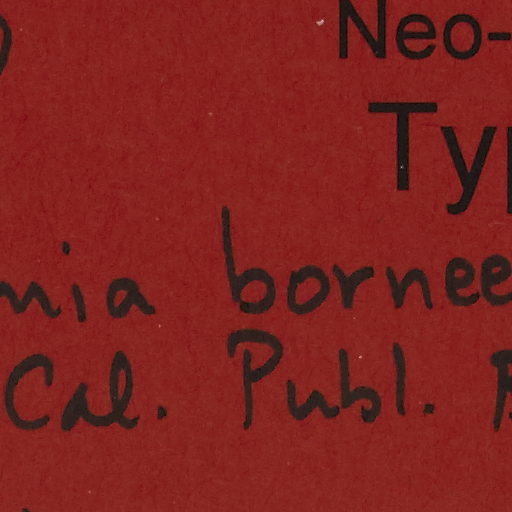 Neo-
Typ
nia bornee
Cal. Publ. B